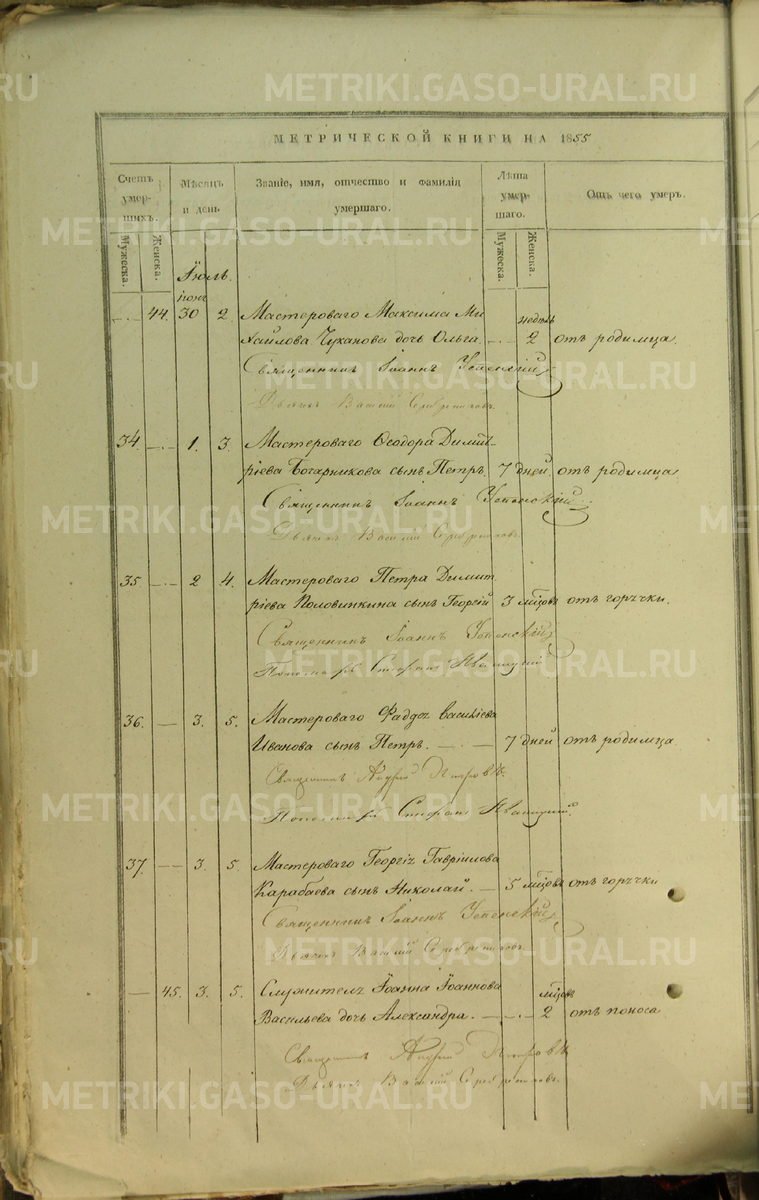 МЕТРИЧЕСКОЙ КНИГИ НА 1855
Счетъ умер-шихъ.
Мѣсяцъ и день
Званіе, имя, отчество и фамилія умершаго.
Лѣта умер-шаго.
Отъ чего умеръ.
Мужеска.
Женска.
Мужеска.
Женска.
Іюль.
іюн
44. 30 2. Мастероваго Максима Ми недѣль
хайлова Чуканова дочь Ольга. 2 отъ родимца.
Священникъ Іоаннъ Успенскій
Дьячокъ Василій Серебрениковъ
34. 1. 3. Мастероваго Ѳеодора Димит-
ріева Бочарникова сынъ Петръ. 7 дней отъ родимца
Священникъ Іоаннъ Успенскій
Дьячокъ Василій Серебрениковъ
35. 2 4. Мастероваго Петра Димит
ріева Половинкина сынъ Георгій 3 мѣсяцовъ отъ горячки.
Священникъ Іоаннъ Успенскій
Пономарь Стефанъ
36. 3. 5. Мастероваго Фаддея Васильева
Иванова сынъ Петръ. 7 дней отъ родимца
Священникъ Андрей Петровъ
Пономарь Стефанъ
37. 3. 5. Мастероваго Георгія Гавріилова
Карабаева сынъ Николай. 5 мѣсяцовъ отъ горячки
Священникъ Іоаннъ Успенскій
Дьячокъ Василій Серебрениковъ
45. 3. 5. Служителя Іоанна Іоаннова мѣсяцовъ
Васильева дочь Александра. 2 отъ поноса
Священникъ Андрей Петровъ
Дьячокъ Василій Серебрениковъ
METRIKI.GASO-URAL.RU